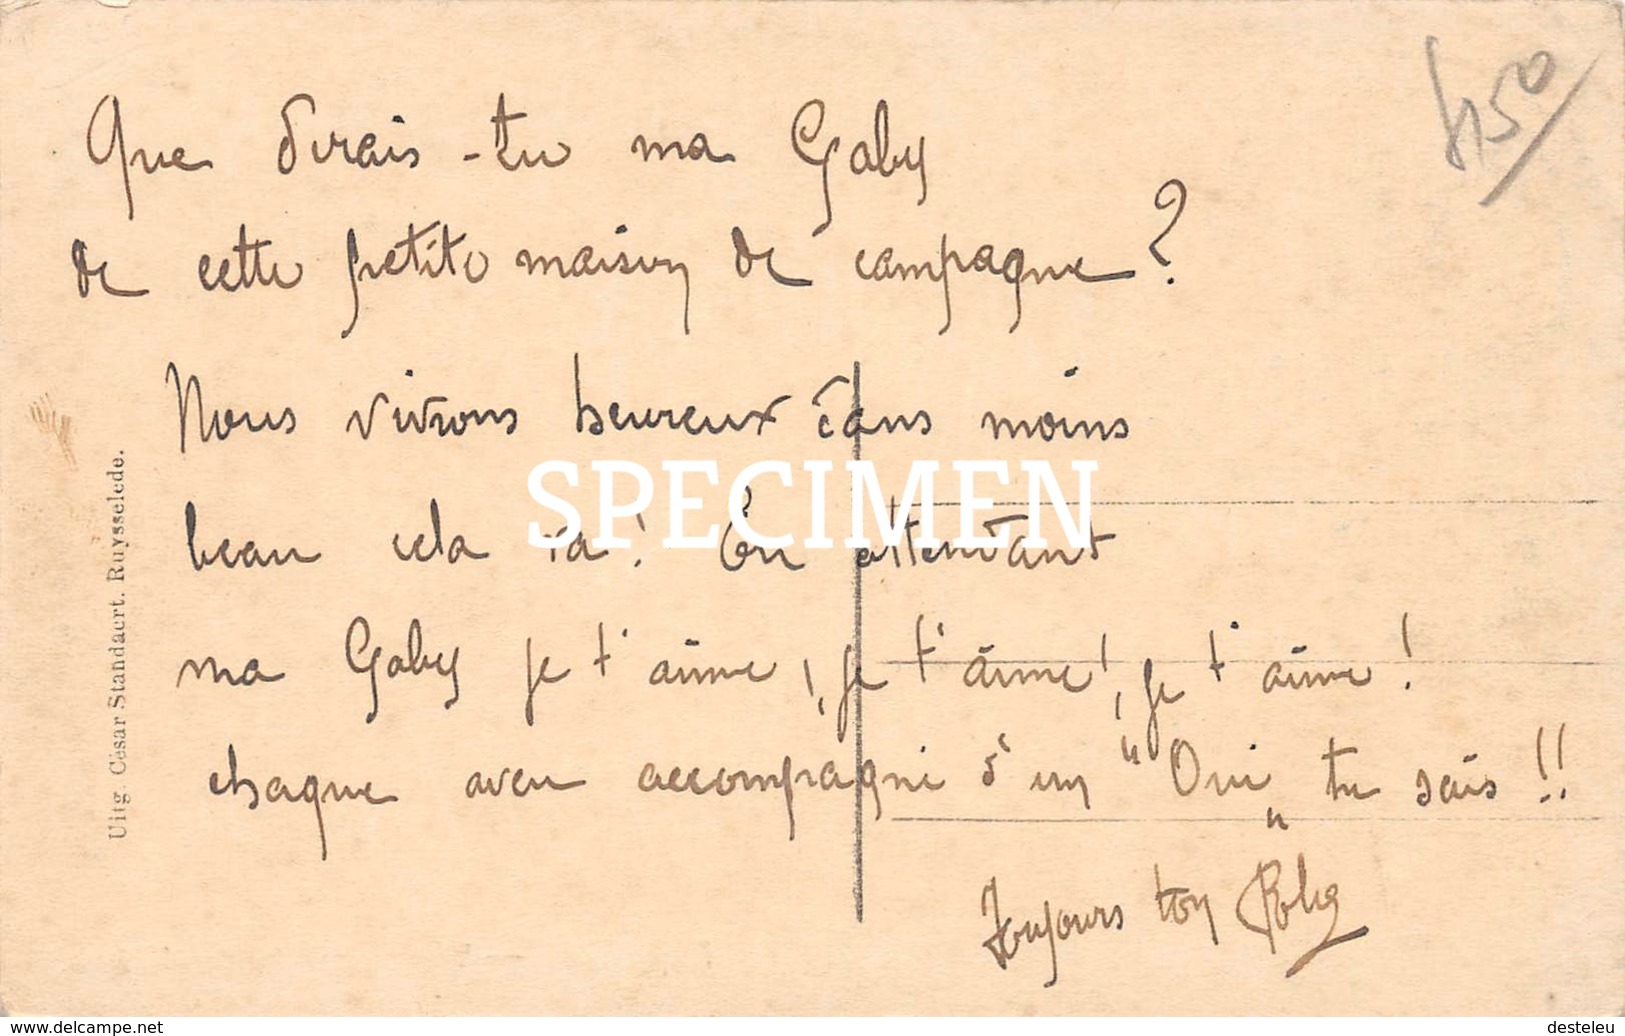 Que dirais-tu ma Gaby
de cette petite maison de campagne ?
Nous vivrons heureux dans moins
beau cela va ! En attendant
ma Gaby je t'aime !, je t'aime !, je t'aime !
chaque aveu accompagné d'un "Oui" tu sais !!
Toujours ton
450
Uitg César Standaert. Ruysselede.
SPECIMEN
www.delcampe.net
desteleu